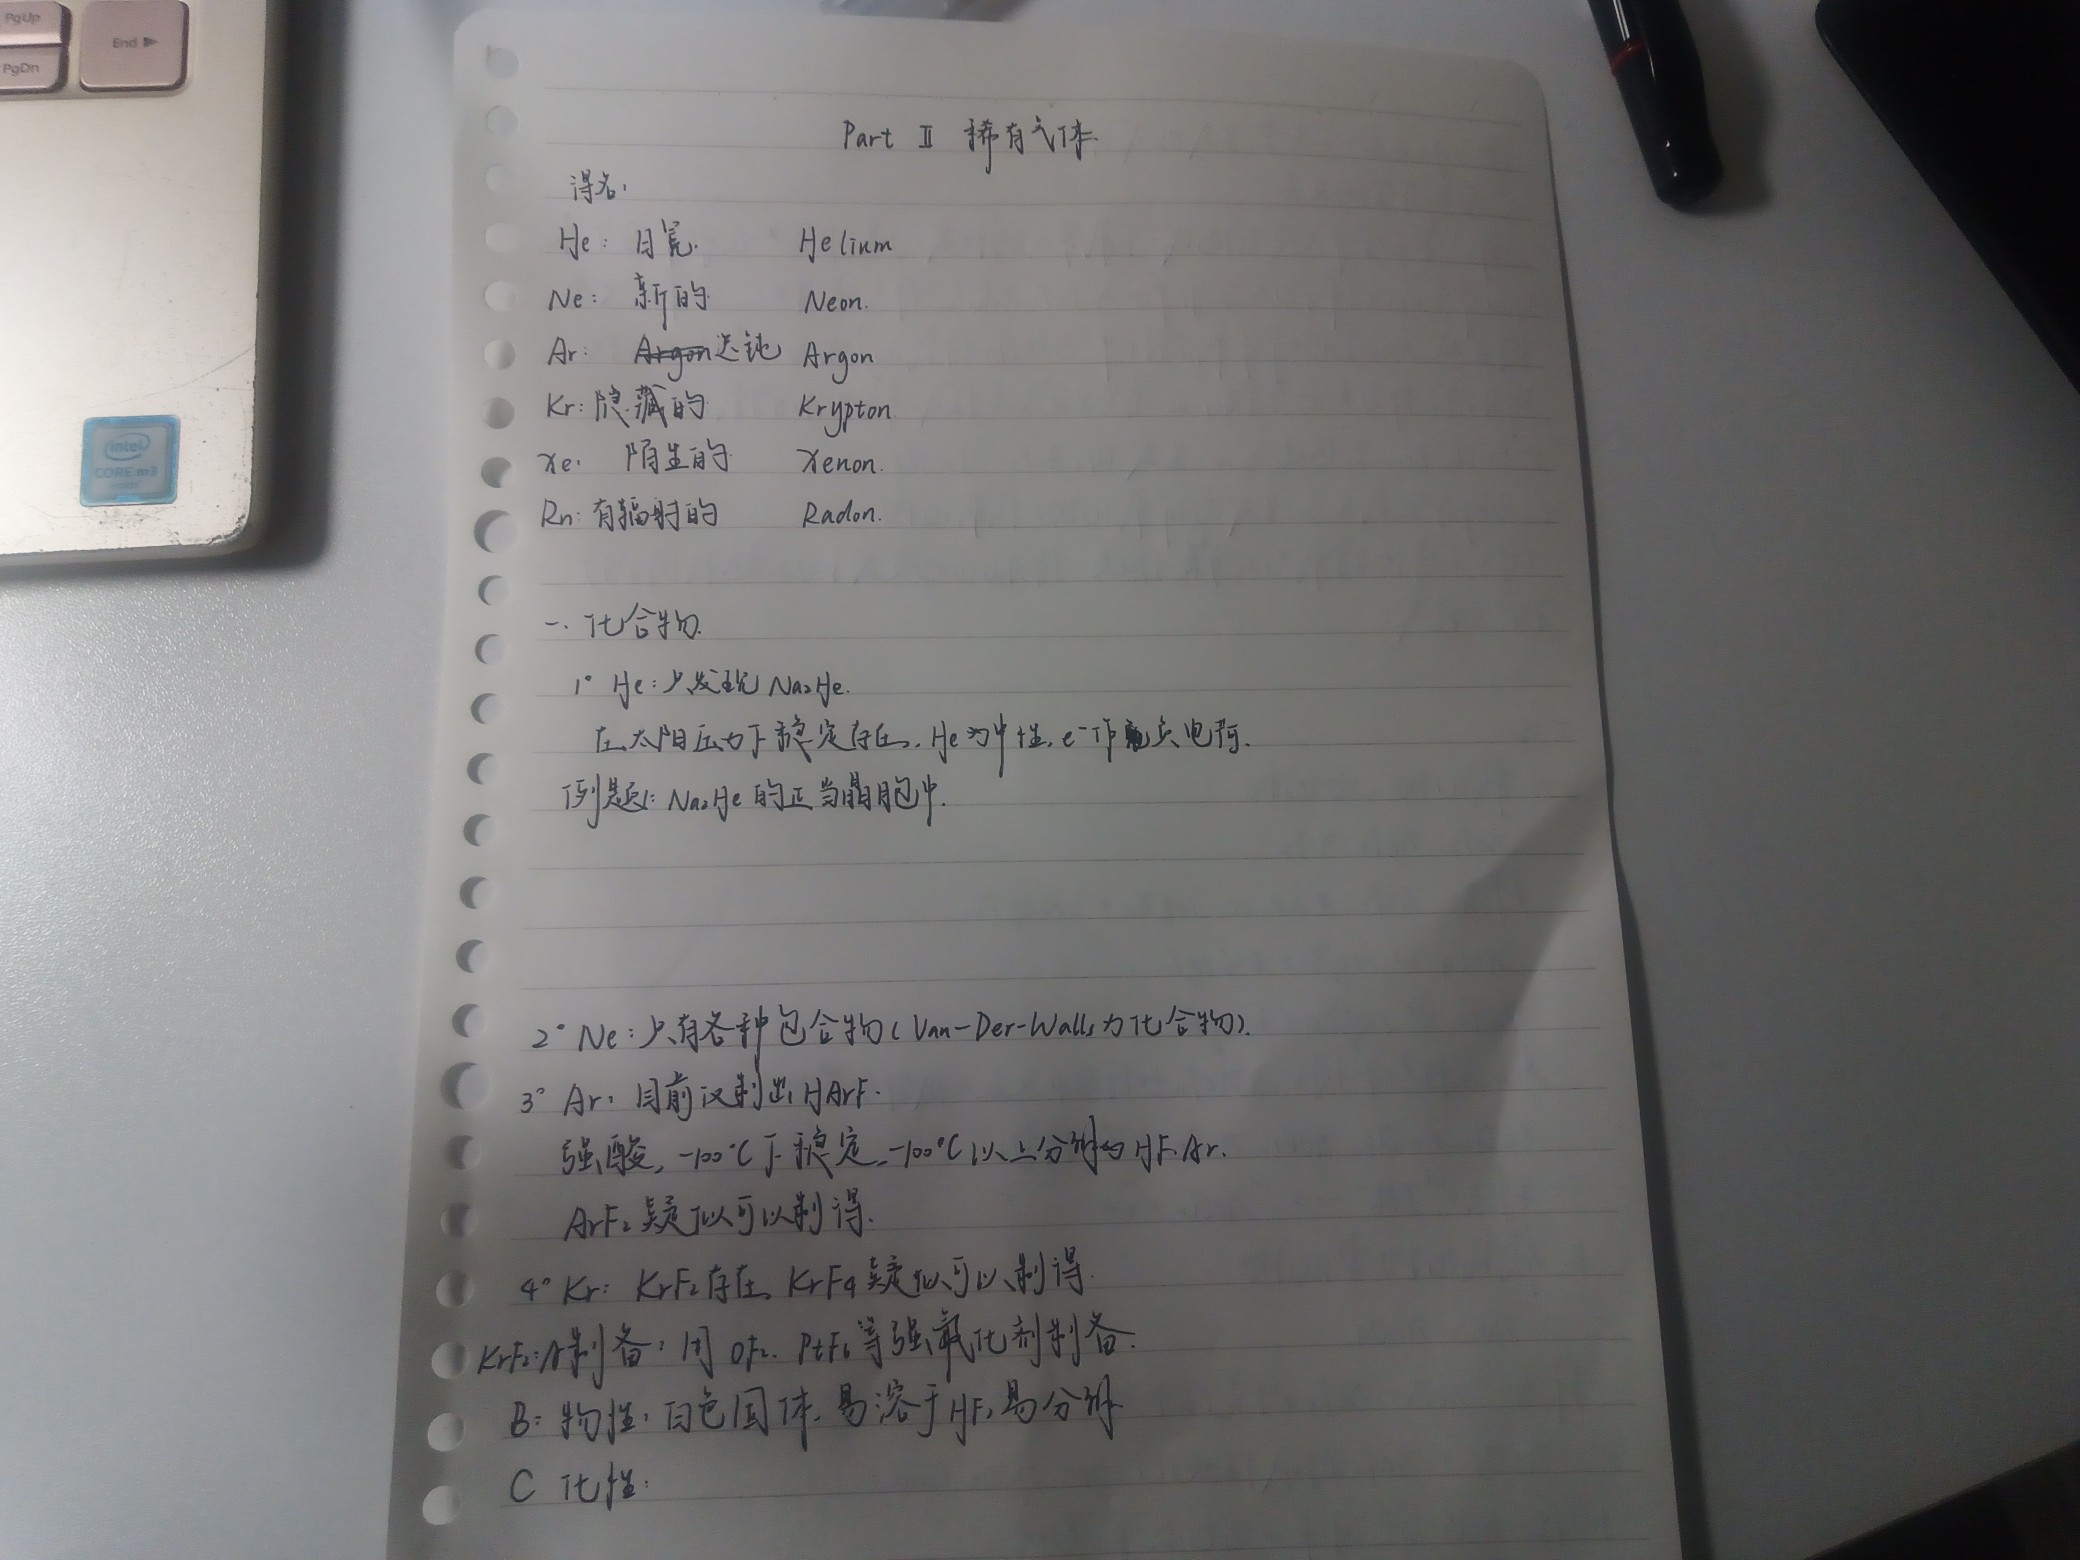 PgUp
End ▶
PgDn
intel
CORE m3
Part Ⅱ 稀有气体.
得名:
He: 日冕. Helium
Ne: 新的 Neon.
Ar: Argon 迟钝 Argon
Kr: 隐藏的 Krypton
Xe: 陌生的 Xenon.
Rn: 有辐射的 Radon.
一. 化合物.
1° He: 只发现 Na₂He.
在太阳压力下稳定存在, He为中性, e⁻作负电荷.
例题1: Na₂He 的正当晶胞中.
2° Ne: 只有各种包合物(Van-Der-Walls力化合物).
3° Ar: 目前仅制出HArF.
强酸, -100℃下稳定, -100℃以上分解为HF、Ar.
ArF₂疑似可以制得.
4° Kr: KrF₂存在, KrF₄疑似可以制得.
KrF₂: A制备: 用OF₂、PtF₆等强氧化剂制备.
B: 物性: 白色固体, 易溶于HF, 易分解
C 化性: